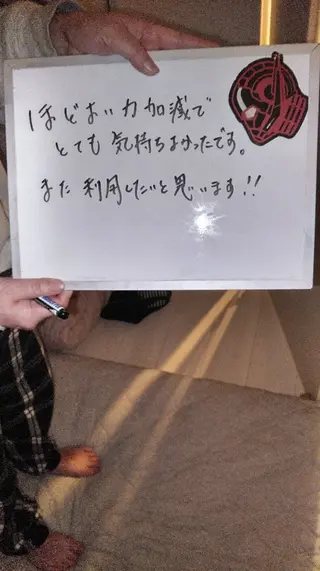 ほどよい力加減で
とても気持ちよかったです。
また利用したいと思います!!